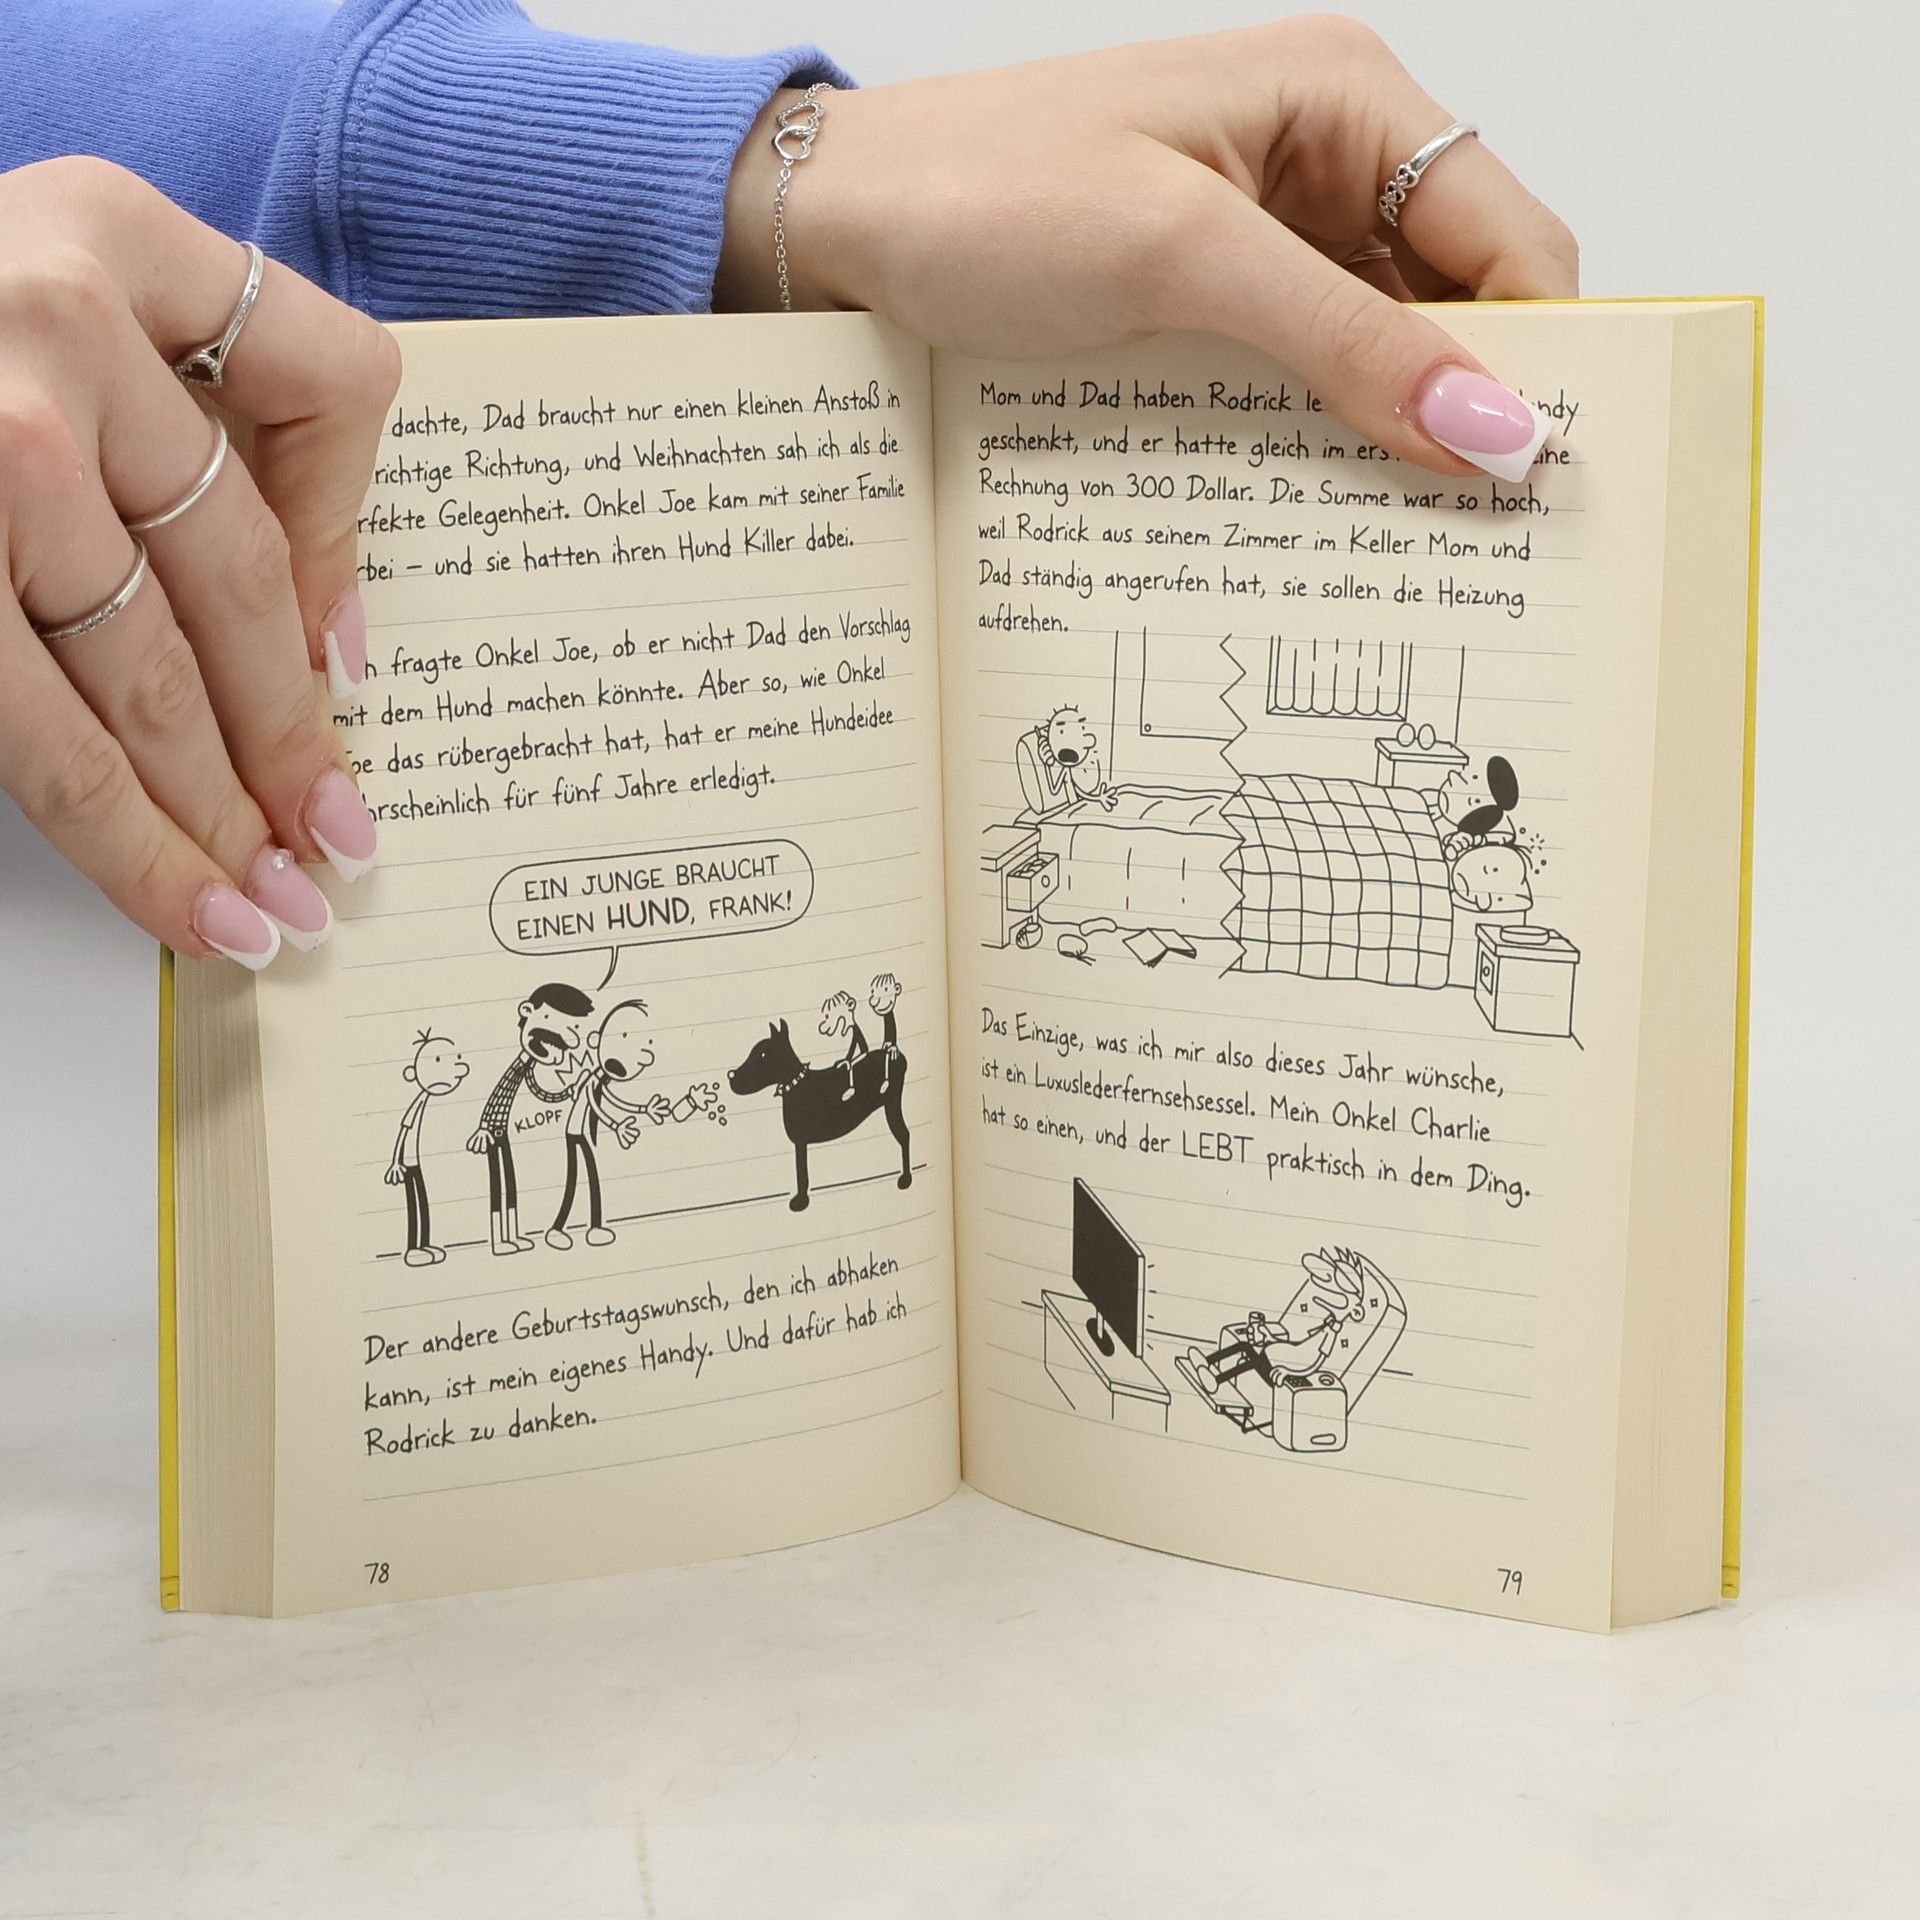 dachte, Dad braucht nur einen kleinen Anstoß in
richtige Richtung, und Weihnachten sah ich als die
Gelegenheit. Onkel Joe kam mit seiner Familie
– und sie hatten ihren Hund Killer dabei.
fragte Onkel Joe, ob er nicht Dad den Vorschlag
mit dem Hund machen könnte. Aber so, wie Onkel
das rübergebracht hat, hat er meine Hundeidee
für fünf Jahre erledigt.
EIN JUNGE BRAUCHT
EINEN HUND, FRANK!
KLOPF
Der andere Geburtstagswunsch, den ich abhaken
kann, ist mein eigenes Handy. Und dafür hab ich
Rodrick zu danken.
78
Mom und Dad haben Rodrick
geschenkt, und er hatte gleich im
Rechnung von 300 Dollar. Die Summe war so hoch,
weil Rodrick aus seinem Zimmer im Keller Mom und
Dad ständig angerufen hat, sie sollen die Heizung
aufdrehen.
Das Einzige, was ich mir also dieses Jahr wünsche,
ist ein Luxuslederfernsehsessel. Mein Onkel Charlie
hat so einen, und der LEBT praktisch in dem Ding.
79